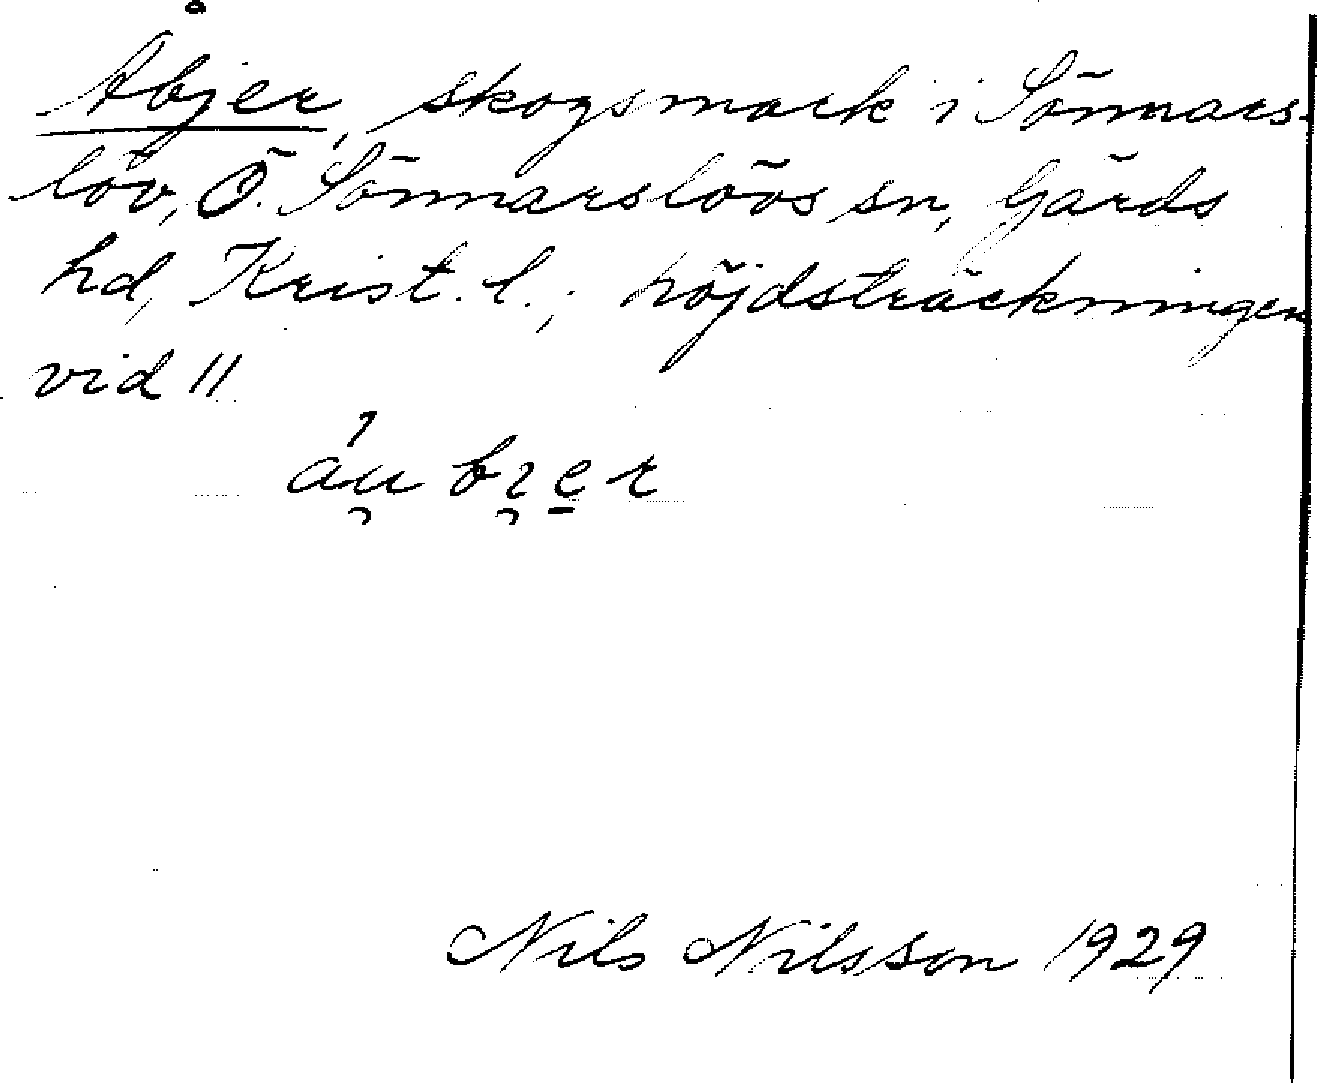 Åbjer, skogsmark i Sönnars-
löv, Ö. Sönnarslövs sn, Gärds
hd, Krist. l.; höjdsträckningen
vid 11
Nils Nilsson 1929